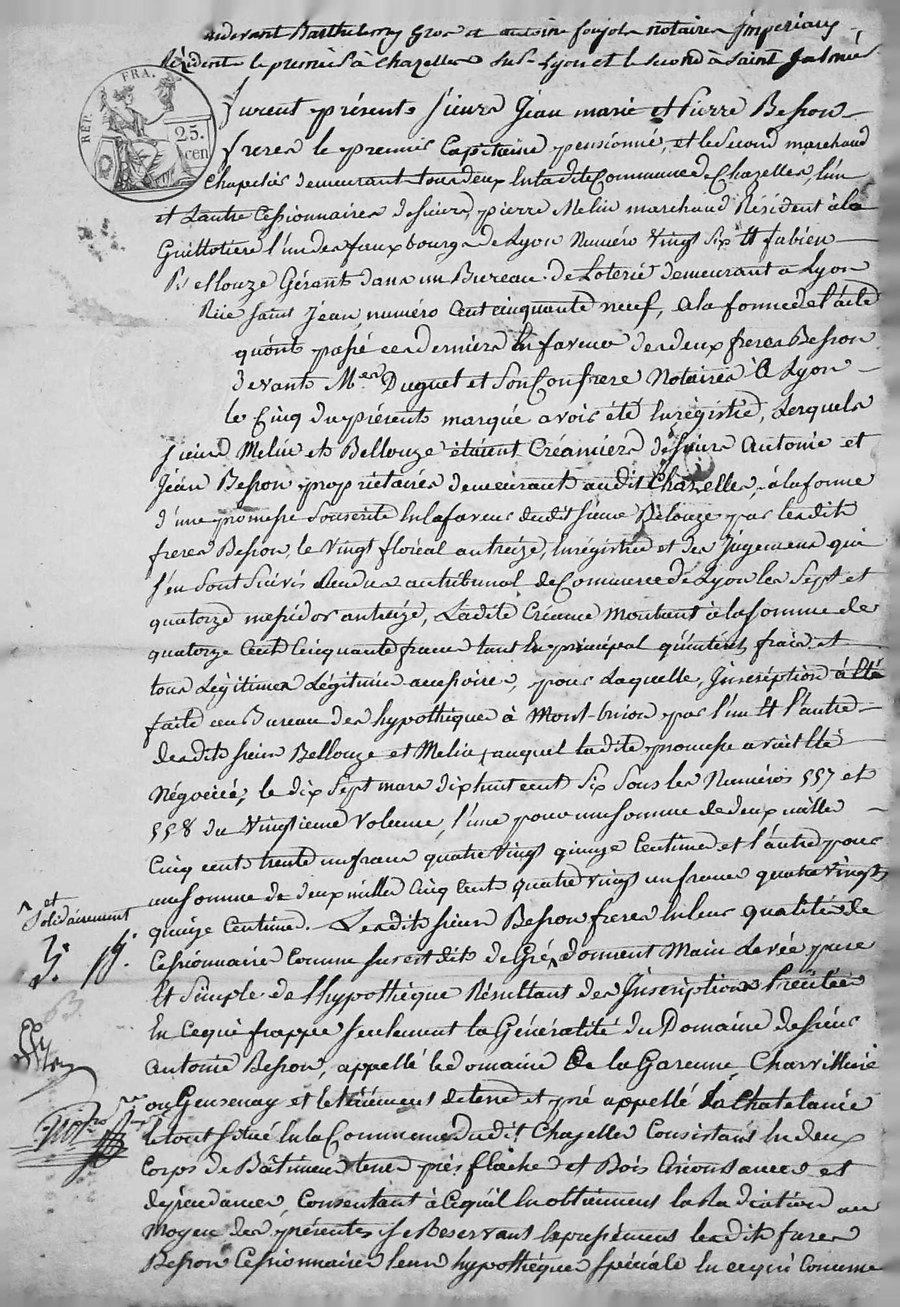 Pardevant Barthelemy Gros et antoine foujols notaires Impériaux
Résidents le premier à Chazelles sur Lyon et le second à Saint Galmier
RÉP. FRA.
25.
cen
furent présents sieurs Jean marie et Pierre Besson
freres le premier Capitaine pensionné, et le Second marchand
Chapelier demeurant tous deux en ladite Commune de Chazelles, l'un
et L'autre Cessionnaires de sieurs pierre Melin marchand Résident à la
Guillotiere l'un des faux bourgs de Lyon Numéro Vingt six Et fabien
Bellouze Gérant dans un Bureau de Loterie demeurant a Lyon
Rue Saint Jean, numéro Cent cinquante neuf, a la forme de l'acte
qu'ont passé ces derniers En faveur des deux freres Besson
devant Mes Duguet et Son Confrere Notaires à Lyon
le Cinq du présent marqué avoir été Enrégistré, Lesquels
sieurs Melin et Bellouze étaient Créanciers de sieurs Antoine et
Jean Besson propriétaires demeurant audit Chazelles, à la forme
d'une promesse Souscrite En la faveur dudit sieur Bélouze par lesdits
freres Besson, le Vingt floréal an treize, Enrégistrée et des Jugements qui
s'en sont suivis Rendus au tribunal de Commerce de Lyon les Sept et
quatorze messidor an treize, Ladite Créance Montant à la somme de
quatorze Cent Cinquante francs tant En principal qu'intérêts, frais et
tous Légitimes Légitime accessoires, pour Laquelle, Inscription à été
faite au Bureau des hypothèques à Mont-brison par l'un Et l'autre
desdits sieurs Bellouze et Melin, auquel ladite promesse avait été
Négociée, le dix Sept mars dix huit cent Six Sous les Numéros 557 et
558 du Vingtieme Volume, l'une pour une somme de deux mille
Cinq cent trente un francs quatre Vingt quinze Centimes et l'autre pour
une somme de deux mille Cinq Cent quatre Vingt un francs quatre Vingt
quinze Centimes. Lesdits sieurs Besson freres en leur qualité de
et
Solidairement
J. P.
Cessionnaires Comme sus est dit de Gré, donnent Main levée pure
Et Simple de l'hypothèque Résultant des Inscriptions Précitées
En Ce qui frappe seulement la Généralité du Domaine de sieur
Antoine Besson, appellé le domaine de la Garenne Charvilliere
ou Gensenay et le ténement de terre et pré appellé La Chatelanie
le tout Situé En la Commune dudit Chazelles Consistant En deux
Corps de Bâtiments terres prés flache et Bois Circonstances et
dépendances, Consentant à Ce qu'il En obtiennent la Radiation au
moyen des présentes se Réservant Expressément lesdits freres
Besson Cessionnaires leur hypothèque spéciale En ce qui Concerne